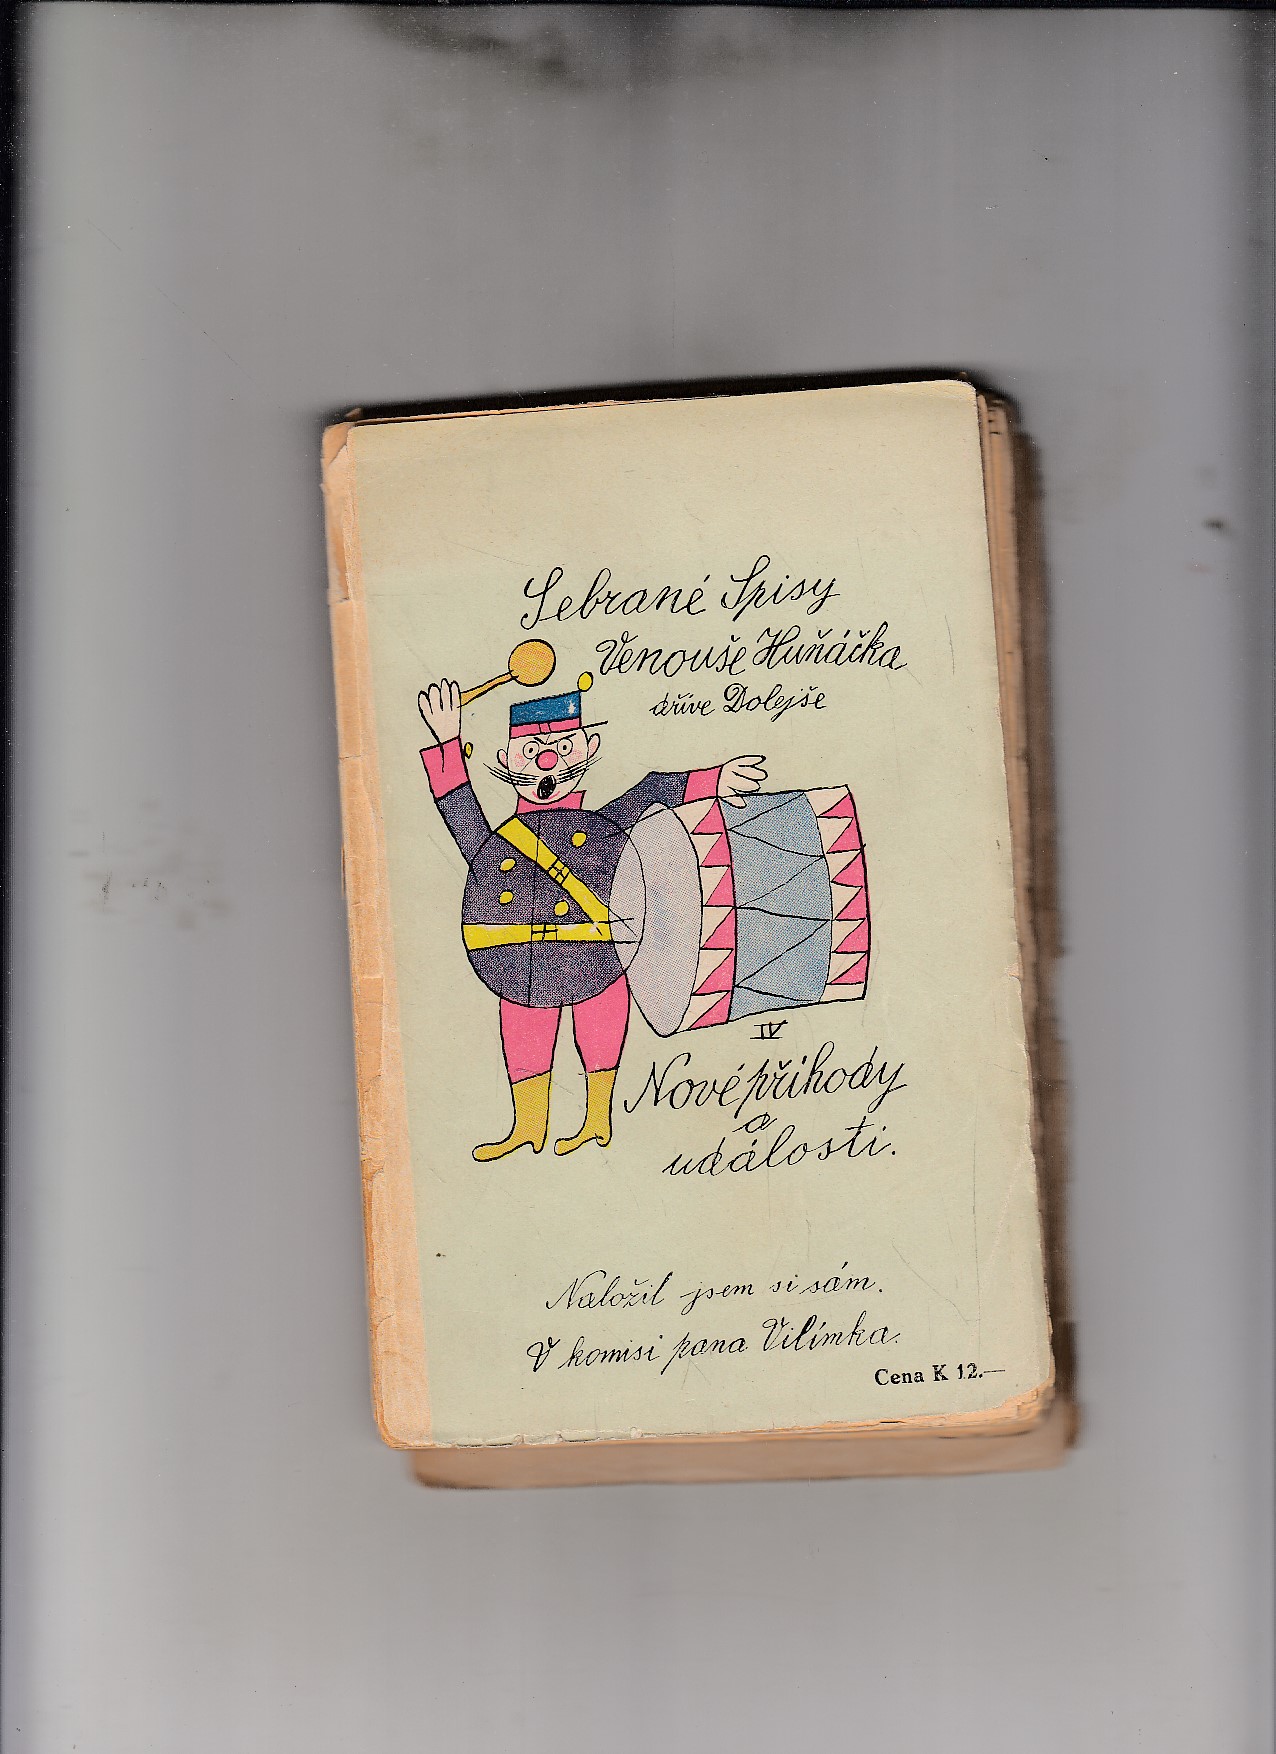 Sebrané Spisy
Venouše Huňáčka
dříve Dolejše
IV
Nové příhody
a
události.
Naložil jsem si sám.
V komisi pana Vilímka.
Cena K 12.—